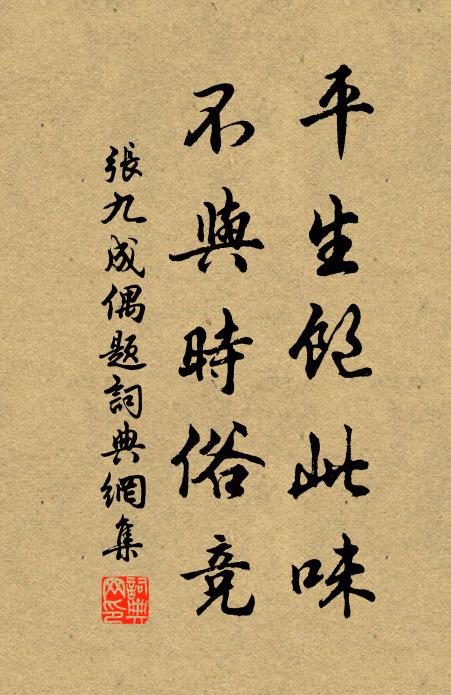 平生飽此味
不與時俗競
張九成偶題詞典網集
詞典網印